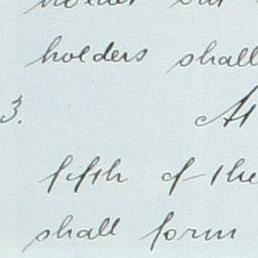 holder but
holders shall
3. At
fifth of the
shall form